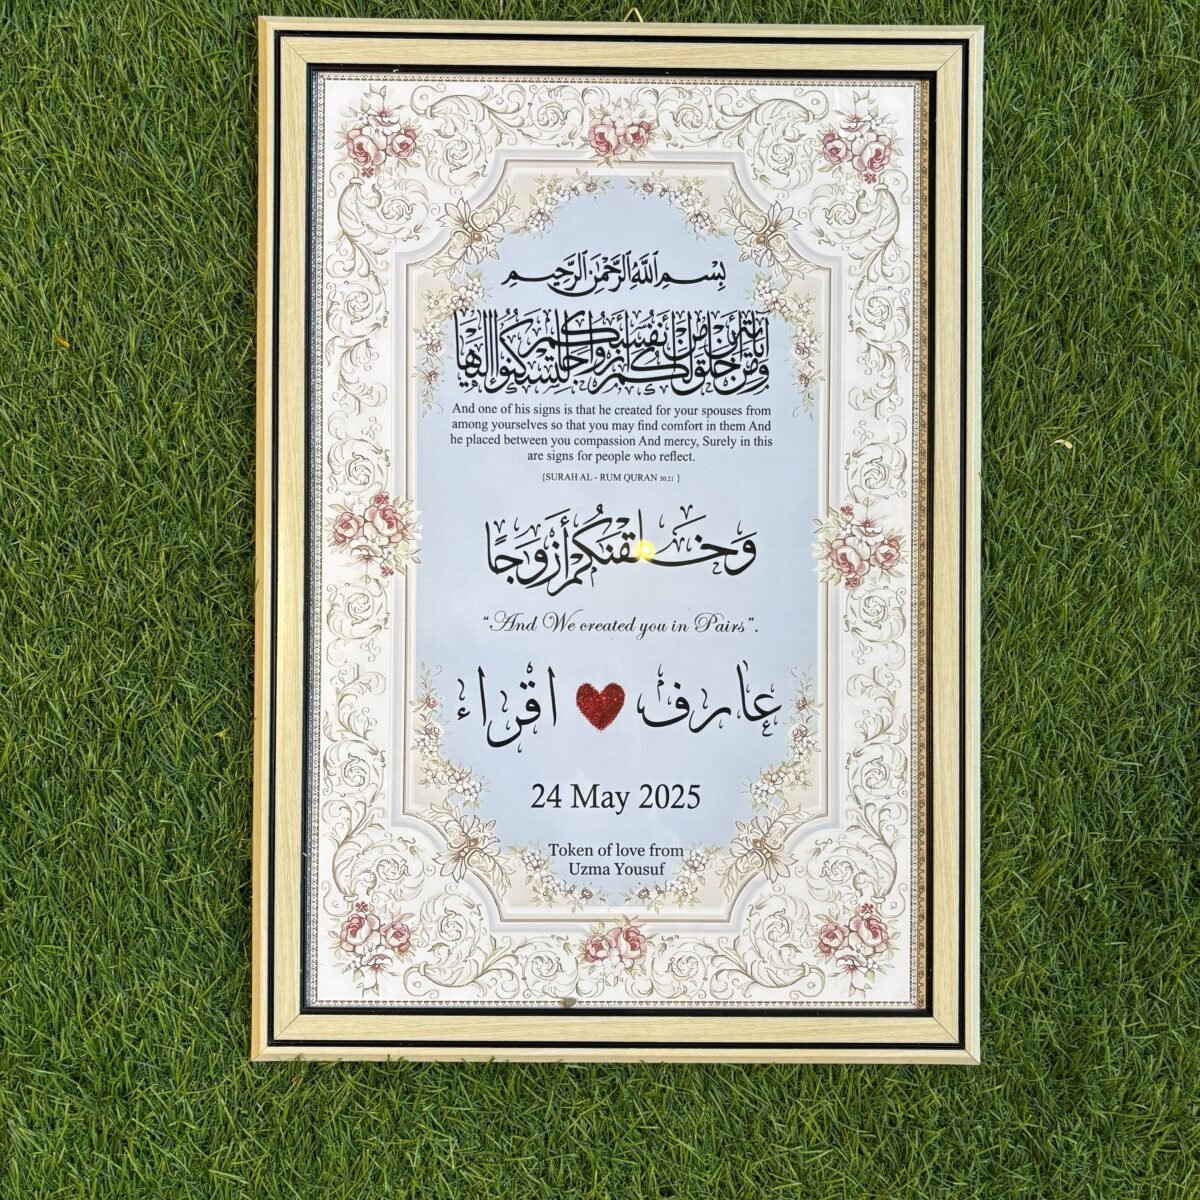 بِسْمِ ٱللَّهِ ٱلرَّحْمَٰنِ ٱلرَّحِيمِ
وَمِنْ آيَاتِهِ أَنْ خَلَقَ لَكُمْ مِنْ أَنْفُسِكُمْ أَزْوَاجًا لِتَسْكُنُوا إِلَيْهَا
And one of his signs is that he created for your spouses from
among yourselves so that you may find comfort in them And
he placed between you compassion And mercy, Surely in this
are signs for people who reflect.
{SURAH AL - RUM QURAN 30:21 }
وَخَلَقْنَكُمْ أَزْوَجًا
“And We created you in Pairs”.
عارف ❤ اقراء
24 May 2025
Token of love from
Uzma Yousuf